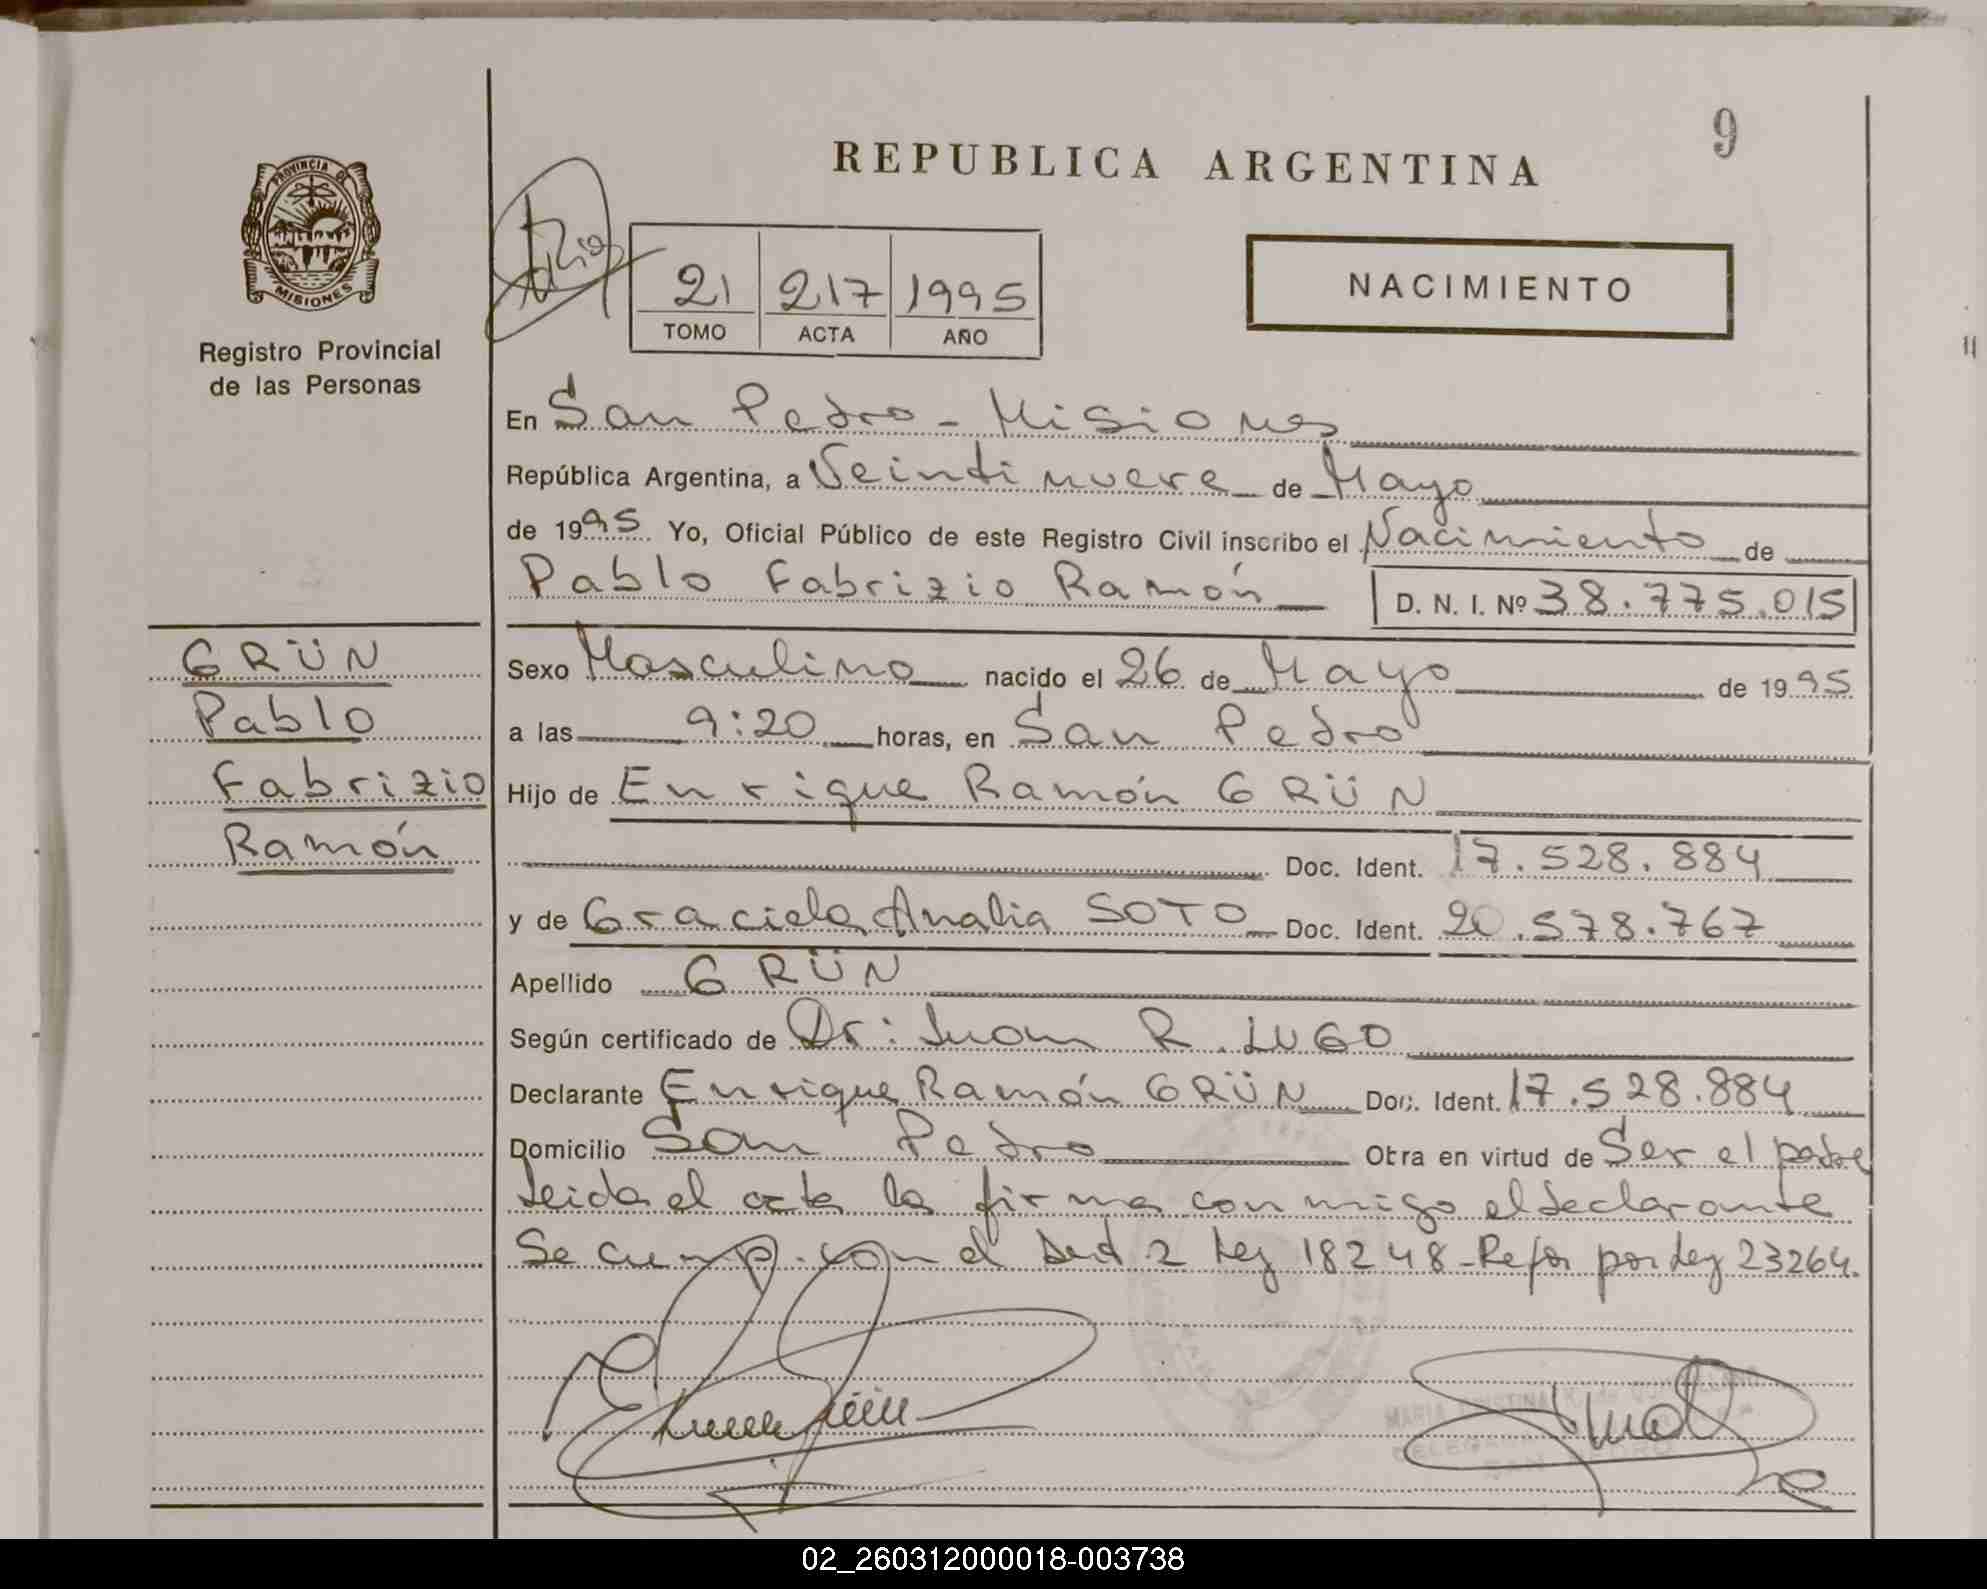 9
REPUBLICA ARGENTINA
PROVINCIA DE
MISIONES
Registro Provincial
de las Personas
21 217 1995
TOMO ACTA AÑO
NACIMIENTO
En San Pedro - Misiones
República Argentina, a Veintinueve de Mayo
de 1995 Yo, Oficial Público de este Registro Civil inscribo el Nacimiento de
Pablo Fabrizio Ramón D. N. I. Nº 38.775.015
GRÜN
Pablo
Fabrizio
Ramón
Sexo Masculino nacido el 26 de Mayo de 1995
a las 9:20 horas, en San Pedro
Hijo de Enrique Ramón GRÜN
Doc. Ident. 17.528.884
y de Graciela Analia SOTO Doc. Ident. 20.578.767
Apellido GRÜN
Según certificado de Dr: Juan R. LUGO
Declarante Enrique Ramón GRÜN Doc. Ident. 17.528.884
Domicilio San Pedro Obra en virtud de Ser el padre
Leida el acta la firma conmigo el declarante
Se cump. con el Art 2 Ley 18248-Refor por Ley 23264.
MARIA CRISTINA
SAN PEDRO
02_260312000018-003738